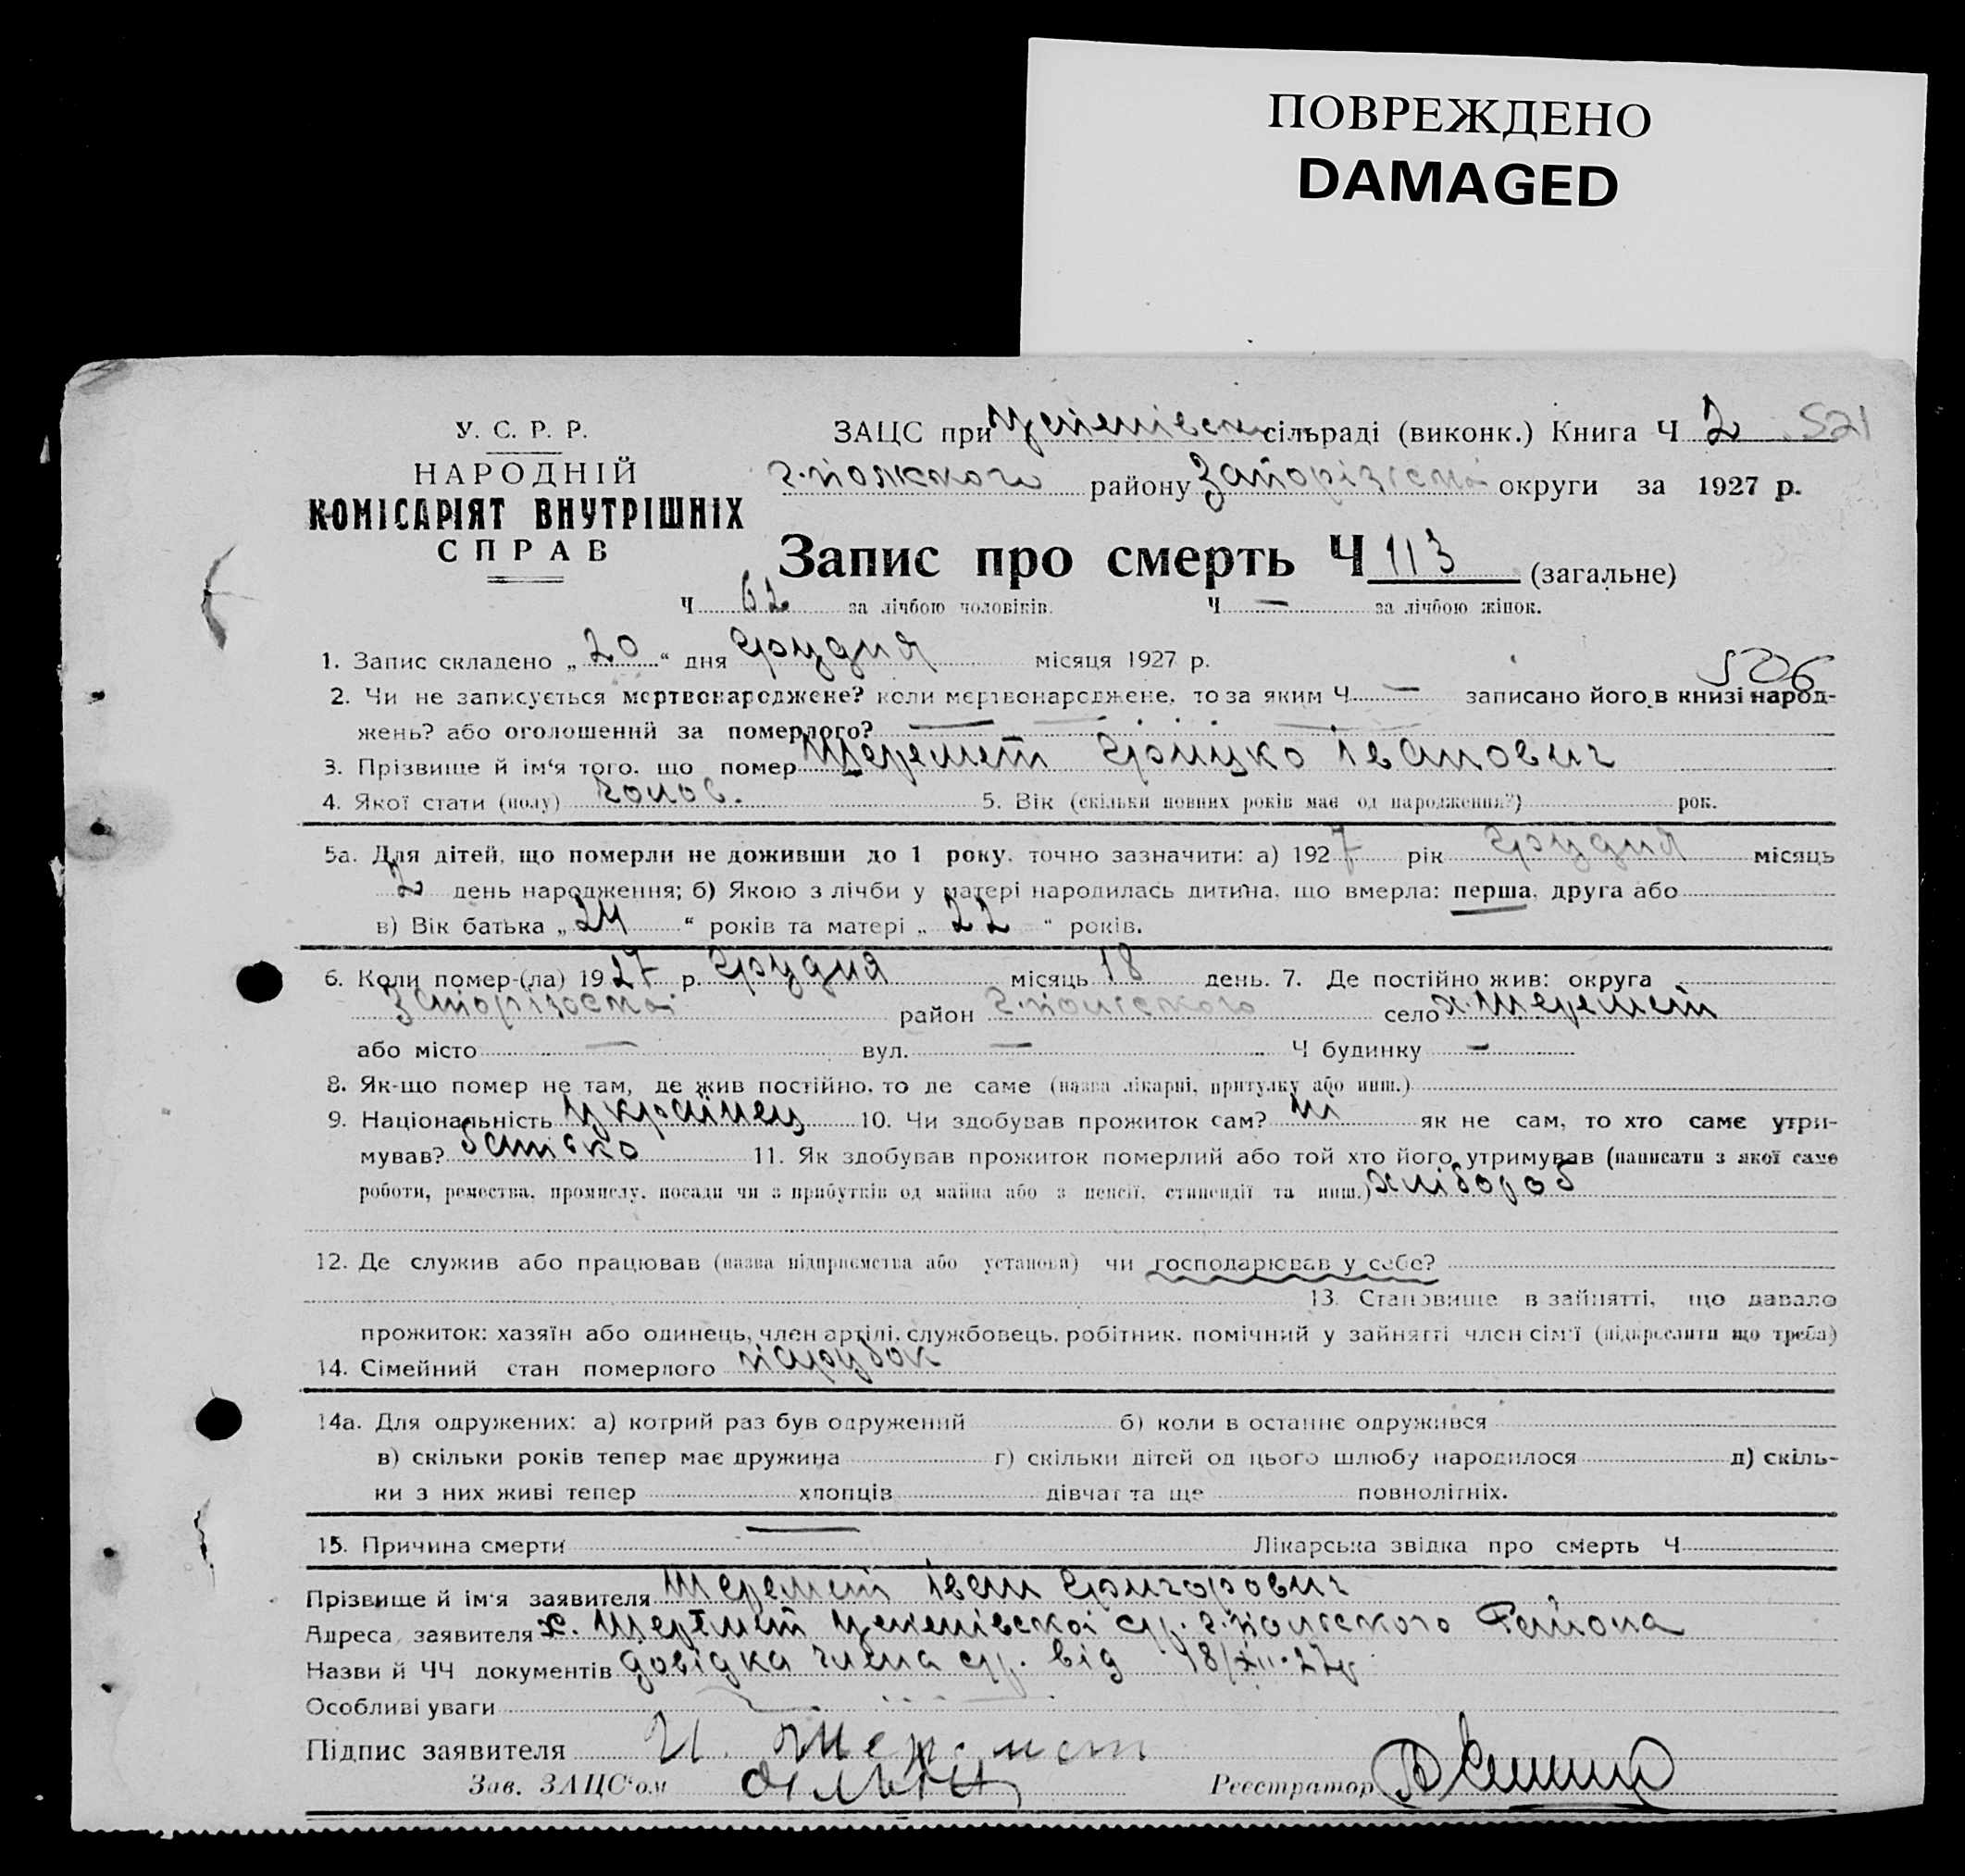 ПОВРЕЖДЕНО
DAMAGED
У. С. Р. Р.
НАРОДНІЙ
КОМІСАРІЯТ ВНУТРІШНІХ
СПРАВ
ЗАЦС при Успенівськ сільраді (виконк.) Книга Ч 2 521
г.польского району Запорізької округи за 1927 р.
Запис про смерть Ч 113 (загальне)
Ч 62 за лічбою чоловіків. Ч — за лічбою жінок.
1. Запис складено „20“ дня Грудня місяця 1927 р.
506
2. Чи не записується мертвонароджене? коли мертвонароджене, то за яким Ч — записано його в книзі народ-
жень? або оголошений за померлого? —
3. Прізвище й ім‘я того, що помер Шеремет Грицко Іванович
4. Якої стати (полу) чолов. 5. Вік (скільки повних років має од народження?) рок.
5а. Для дітей, що померли не доживши до 1 року, точно зазначити: а) 1927 рік Грудня місяць
2 день народження; б) Якою з лічби у матері народилась дитина, що вмерла: перша, друга або
в) Вік батька „24“ років та матері „22“ років.
6. Коли помер-(ла) 1927 р. Грудня місяць 18 день. 7. Де постійно жив: округа
Запорізська район г.польского село х. Шеремет
або місто — вул. — Ч будинку —
8. Як-що помер не там, де жив постійно, то де саме (назва лікарні, притулку або инш.)
9. Національність Українец 10. Чи здобував прожиток сам? ні як не сам, то хто саме утри-
мував? батько 11. Як здобував прожиток померлий або той хто його утримував (написати з якої саме
роботи, ремества, промислу, посади чи з прибутків од майна або з пенсії, стипендії та инш.) хлібороб
12. Де служив або працював (назва підприємства або установи) чи господарював у себе?
13. Становище в зайнятті, що давало
прожиток: хазяїн або одинець, член артілі, службовець, робітник, помічний у зайнятті член сім‘ї (підкреслити що треба)
14. Сімейний стан померлого парубок
14а. Для одружених: а) котрий раз був одружений б) коли в останнє одружився
в) скільки років тепер має дружина г) скільки дітей од цього шлюбу народилося д) скіль-
ки з них живі тепер хлопців дівчат та ще повнолітніх.
15. Причина смерти — Лікарська звідка про смерть Ч
Прізвище й ім‘я заявителя Шеремет Іван Григорович
Адреса заявителя х. Шеремет Успенівської ср. г.польского Района
Назви й ЧЧ документів довідка члена ср. від 18/XII-27р.
Особливі уваги
Підпис заявителя И. Шеремет
Зав. ЗАЦС‘ом
Реєстратор